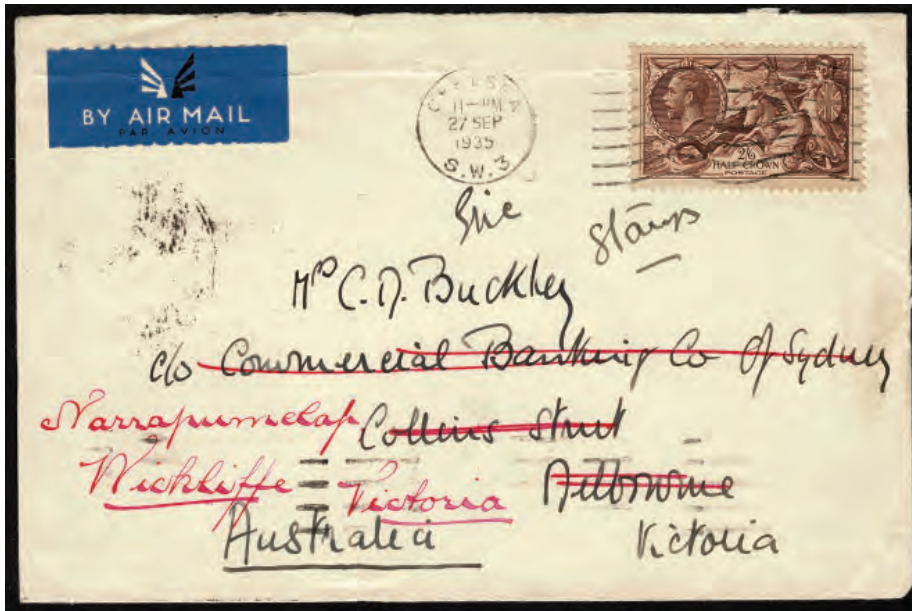 BY AIR MAIL
PAR AVION
CHELSEA
11-PM
27 SEP
1935
S.W.3
2/6
HALF CROWN
POSTAGE
Stamps
Mrs C.D. Buckley
c/o Commercial Banking Co Of Sydney
Narrapumelap Collins Street
Wickliffe Victoria Melbourne
Australia Victoria